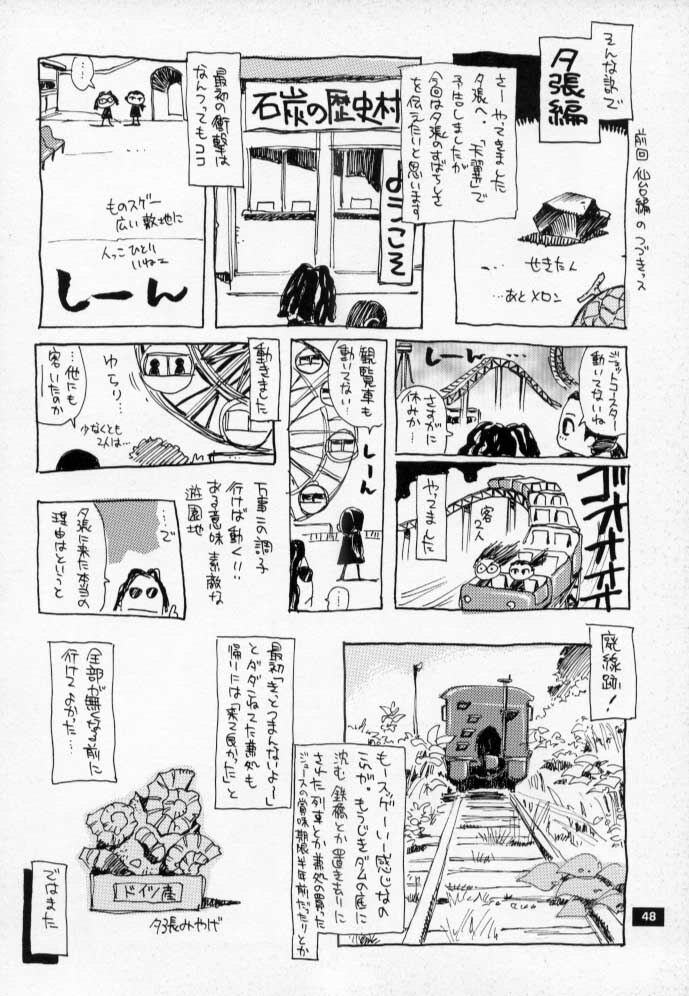 そんな訳で
夕張編
前回 仙台編のつづきっス
せきたん
…あとメロン
さーやってきました
夕張へ。「天翼」で
予告しましたが
今回は夕張のすばらしさ
を伝えたいと思います。
石炭の歴史村
ようこそ
最初の衝撃は
なんつってもココ
…
ものスゲー
広い敷地に
人っこひとり
いねェ
しーん
ジェットコースター
動いてないね
しーん
さすがに
休みか…
ゴオオオオ
客2人
やってました
観覧車も
動いてない
しーん
…
動きました
ゆらり…
…他にも
客いたのか
少なくとも
2人は…
万事この調子
行けば動く!!
ある意味素敵な
遊園地
…で
夕張に来た本当の
理由はというと
廃線跡!
もースゲーいー感じなの
これが。もうじきダムの底に
沈む鉄橋とか置き去りに
された列車とか兼処の買った
ジュースの賞味期限半年前だったりとか
最初「きっとつまんないよー」
とダダこねてた兼処も
帰りには「来て良かった」と
全部が無くなる前に
行けてよかった…
ドイツ産
夕張みやげ
ではまた
48